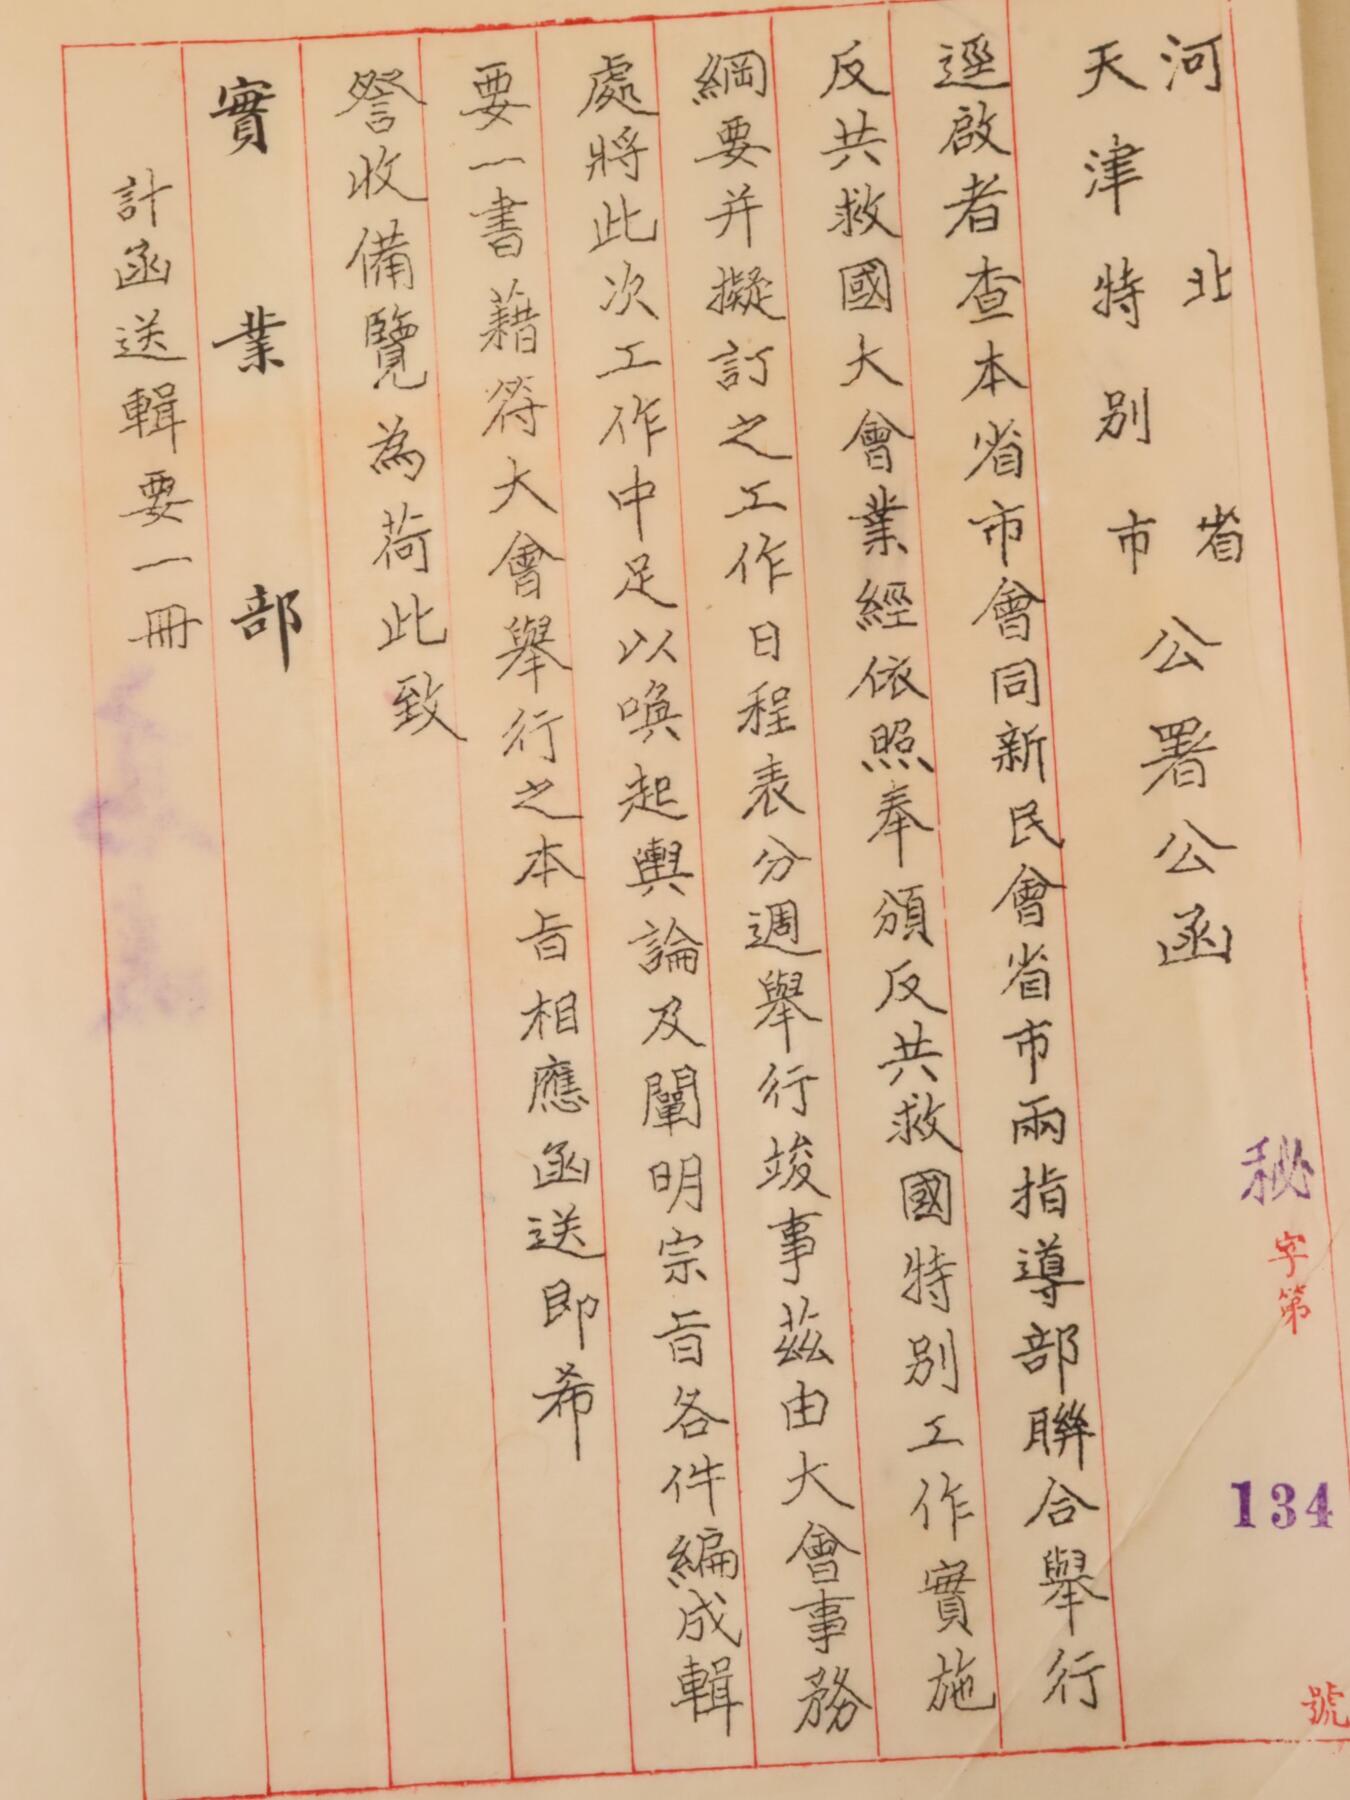 河北省
天津特別市
公署公函
秘字第134號
逕啟者查本省市會同新民會省市兩指導部聯合舉行
反共救國大會業經依照奉頒反共救國特別工作實施
綱要并擬訂之工作日程表分週舉行竣事茲由大會事務
處將此次工作中足以喚起輿論及闡明宗旨各件編成輯
要一書藉符大會舉行之本旨相應函送即希
詧收備覽為荷此致
實業部
計函送輯要一冊